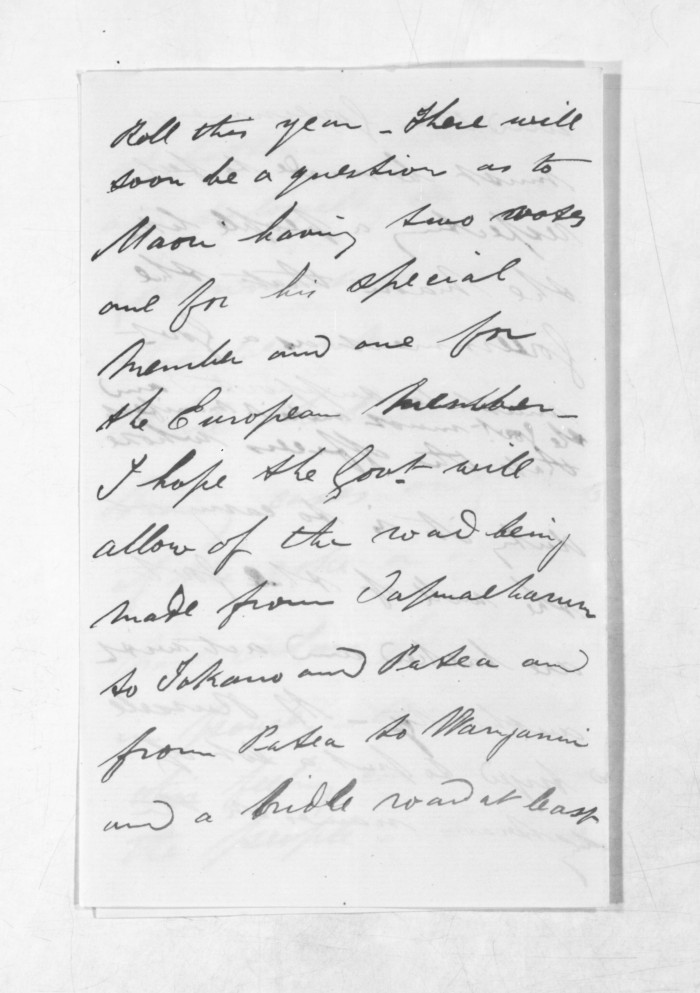 Roll this year - There will
soon be a question as to
Maori having two votes
one for his special
Member and one for
the European Member -
I hope the Govt. will
allow of the road being
made from Tapuaeharuru
to Tokano and Patea and
from Patea to Wanganui
and a bridle road at least